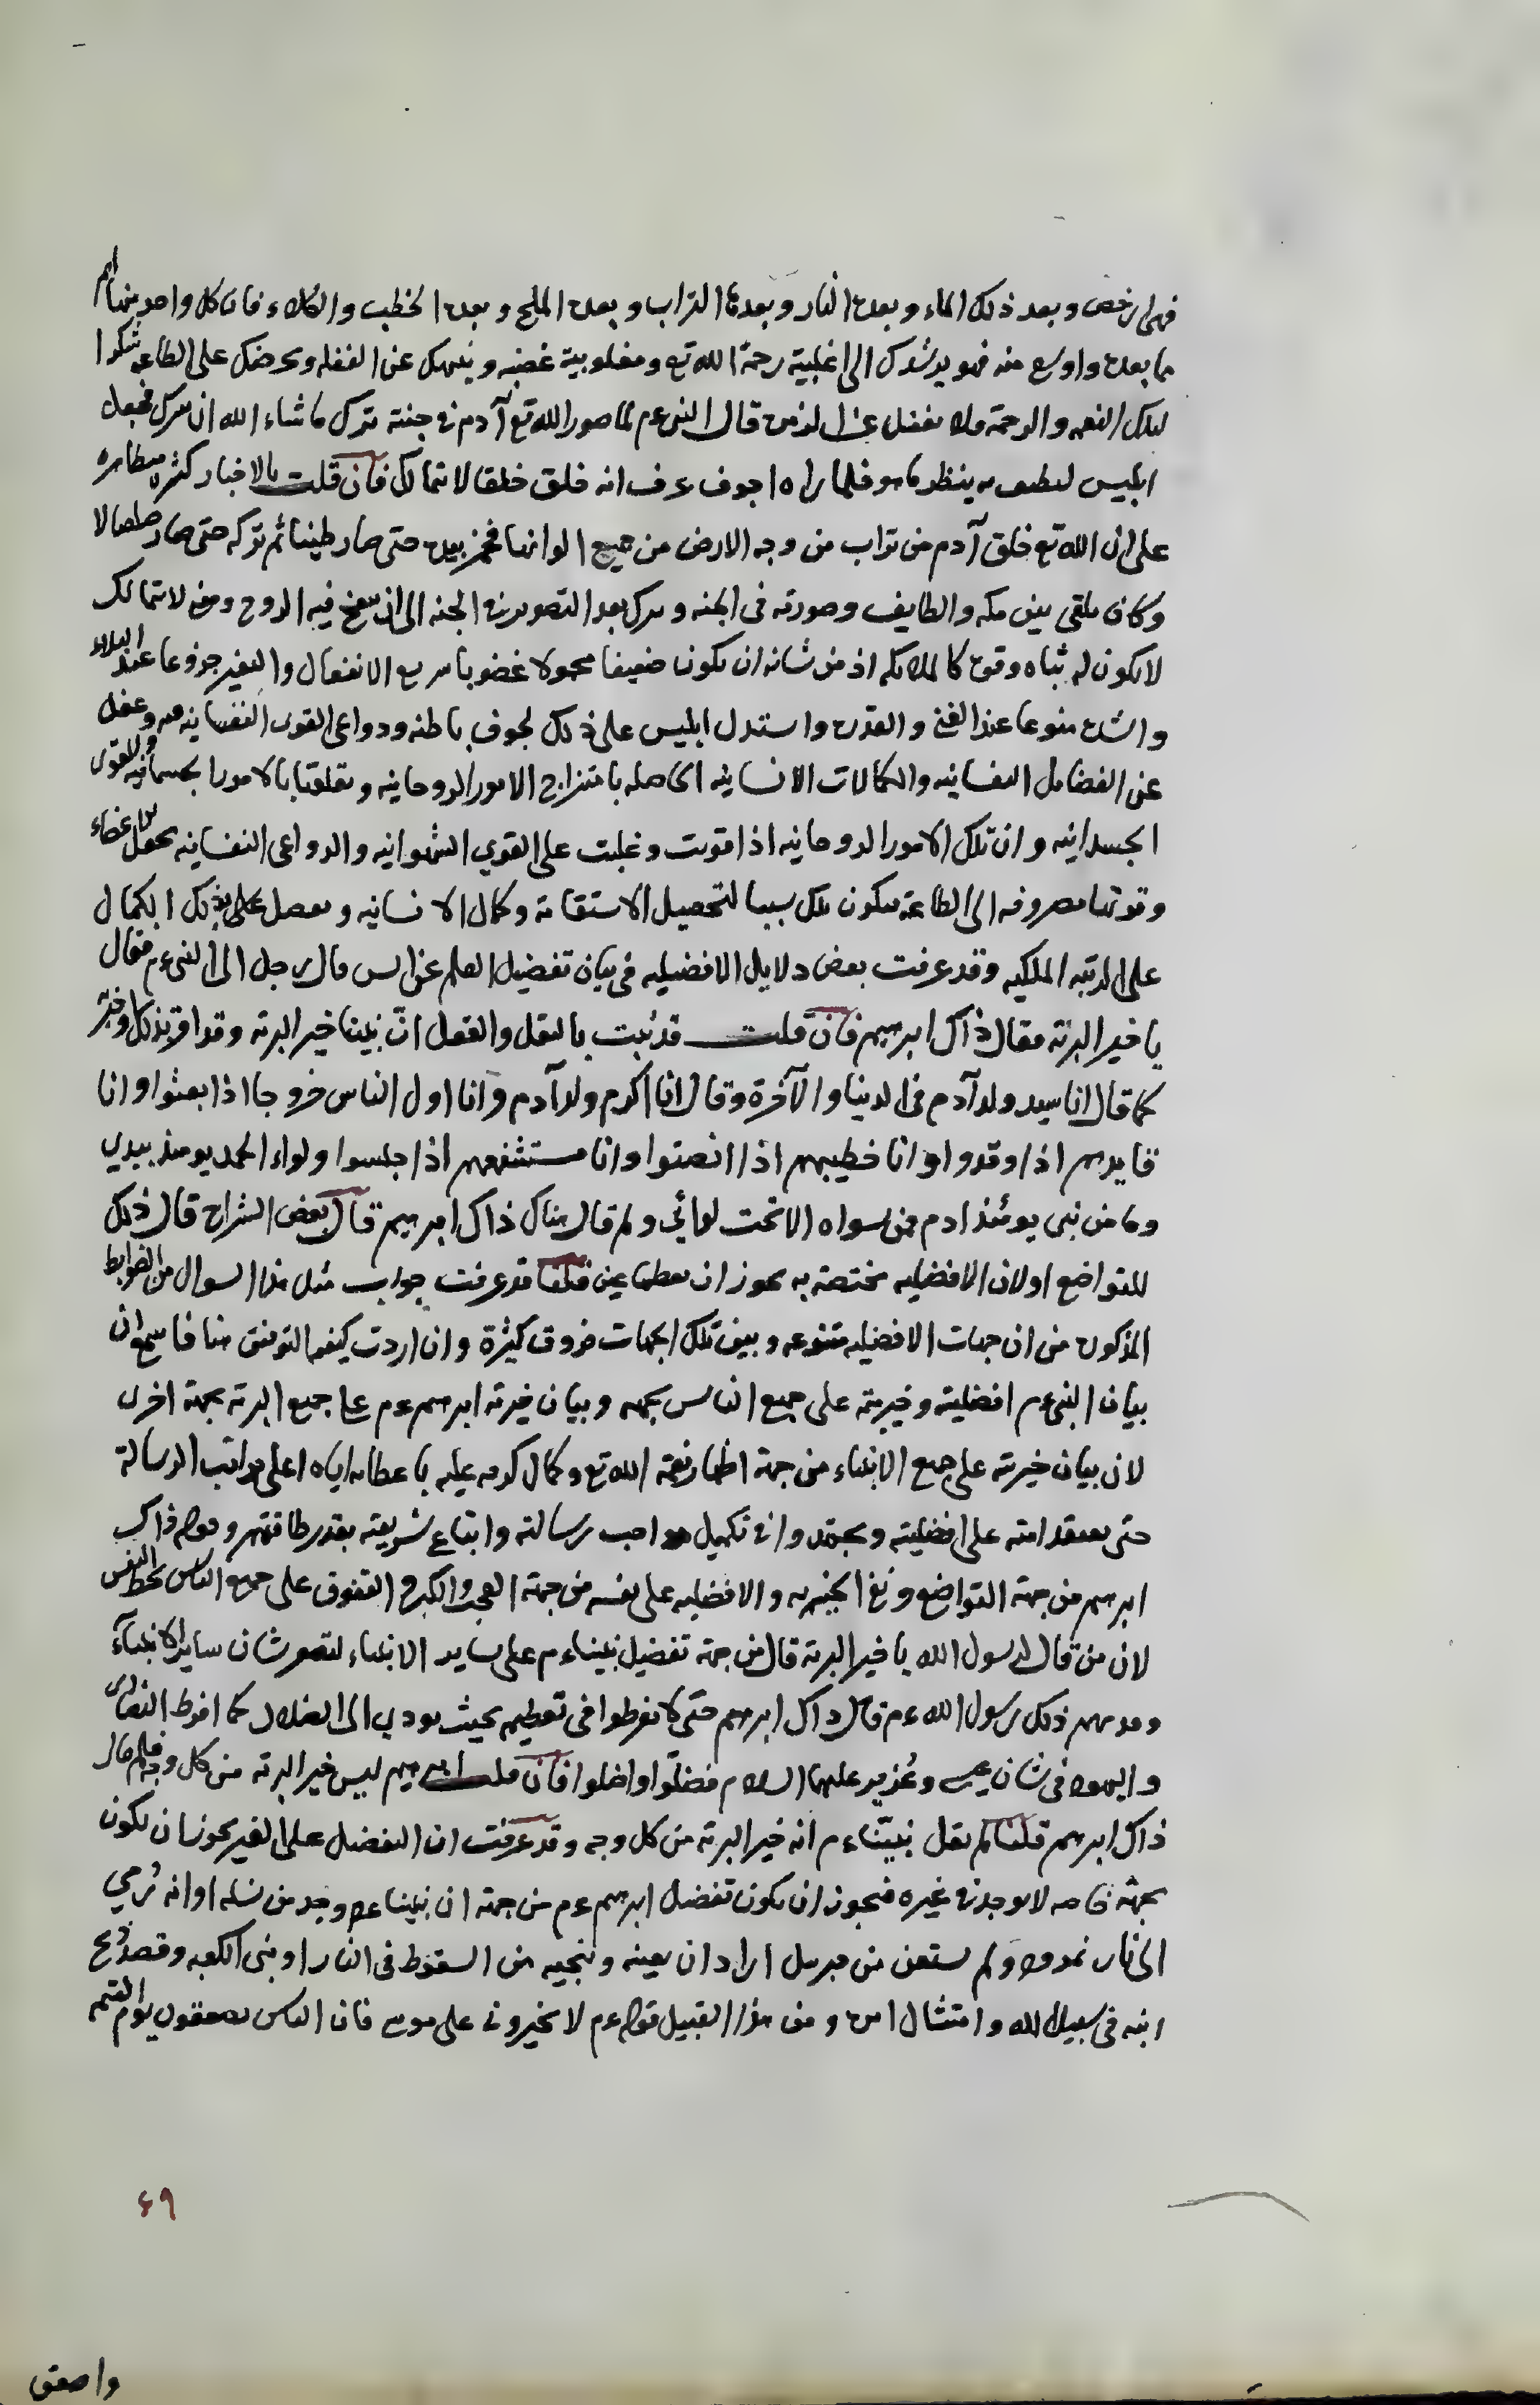 فهى ارخص وبعد ذلك الماء وبعده النار وبعدها التراب وبعده الملح وبعده الحطب والكلاء فان كل واحد منها اهم
مما بعده واوسع منه فهو يرشدك الى اغلبية رحمة الله تع ومغلوبية غضبه وينبهك عن الغفله ويحرضك على الطاعه شكرا
لتلك النعمه والرحمة ولا تغفل عن انس قال النبى عم لما صور الله تع آدم فى جنته تركه ما شاء الله ان يتركه فجعل
ابليس يطيف به ينظر ما هو فلما راه اجوف عرف انه خلق خلقا لا يتمالك فان قلت الاخبار كثيره متظاهره
على ان الله تع خلق آدم من تراب من وجه الارض من جميع الوانها فخمر بيده حتى صار طينا ثم تركه حتى صار صلصالا
وكان ملقى بين مكه والطايف وصورته فى الجنه وتركه بعد التصوير فى الجنه الى ان ينفخ فيه الروح ومعنى لا يتمالك
لا يكون له ثبات وقوة كالملائكه اذ من شانه ان يكون ضعيفا عجولا غضوبا سريع الانفعال والتغير جزوعا عند البلاء
والشده منوعا عند الغنى والقدره واستدل ابليس على ذلك بجوف باطنه ودواعى القوى النفسانيه فيه وغفل
عن الفضايل النفسانيه والكمالات الانسانيه الحاصله بامتزاج الامور الروحانيه وتعلقها بالامور الجسمانيه والقوى
الجسدانيه وان تلك الامور الروحانيه اذا قويت وغلبت على القوى الشهوانيه والدواعى النفسانيه تجعل الاعضاء
وقوتها مصروفه الى الطاعة فيكون ذلك سببا لتحصيل الاستقامة وكمال الانسانيه ويفضل على بذلك الكمال
على الرتبه الملكيه وقد عرفت بعض دلايل الافضليه فى بيان تفضيل العلم عن انس قال رجل الى النبى عم فقال
يا خير البرية فقال ذاك ابرهيم فان قلت قد ثبت بالنقل والعقل انّ نبينا خير البرية وقد اقر بذلك واخبر
كما قال انا سيد ولد آدم فى الدنيا والآخرة وقال انا اكرم ولد آدم وانا اول الناس خروجا اذا بعثوا وانا
قايدهم اذا وفدوا وانا خطيبهم اذا انصتوا وانا مستشفعهم اذا جلسوا ولواء الحمد يومئذ بيدى
وما من نبى يومئذ ادم فمن سواه الا تحت لوائى ولم قال هناك ذاك ابرهيم قال بعض الشراح قال ذلك
للتواضع او لان الافضليه مختصة به يجوز ان قلنا قد عرفت جواب مثل هذا السوال من الضوابط
المذكوره من ان جهات الافضليه متنوعه وبين تلك الجهات فروق كثيرة وان اردت كيفيه التوفيق هنا فاسمع ان
بيان النبى عم افضليته وخيريته على جميع الناس بجهه وبيان خيرية ابرهيم عم على جميع البرية بجهة اخرى
لان بيان خيريته على جميع الانبياء من جهة اظهار نعمة الله تع وكمال كرمه عليه باعطائه اياه اعلى مراتب الرسالة
حتى يعتقد امته على افضليته ويجتهدوا فى تكميل مواجب رسالته واتباع شريعته بقدر طاقتهم وقوله ذاك
ابرهيم من جهة التواضع ونفى الخيريه والافضليه على نفسه من جهة العجب والكبر والتفوق على جميع الناس بحظ النفس
لان من قال لرسول الله يا خير البرية قال من جهة تفضيل نبينا عم على ساير الانبياء لقصور شان ساير الانبيآء
وفهم ذلك رسول الله عم قال ذاك ابرهيم حتى لا يفرطوا فى تعظيمه بحيث يودى الى الضلال كما افرط النصارى
واليهود فى شان عيسى وعُزير عليهما السلام فضلّوا واضلوا فان قلت ابرهيم ليس خير البرية من كل وجه فلم قال
ذاك ابرهيم قلنا لم يقل نبيّنا عم انه خير البرية من كل وجه وقد عرفت ان التفضيل على الغير يجوز ان يكون
بجهة خاصه لا يوجد فى غيره فيجوز ان يكون تفضيل ابرهيم عم من جهة ان نبينا عم وجد من نسله او انه رُمى
الى نار نمرود ولم يستعن من جبريل اراد ان يعينه وينجيه من السقوط فى النار او بنى الكعبه وقصد ذبح
ابنه فى سبيل الله وامتثال امره ومن هذا القبيل قوله عم لا تخيرونى على موسى فان الناس يصعقون يوم القيمه
٤٩
واصعق